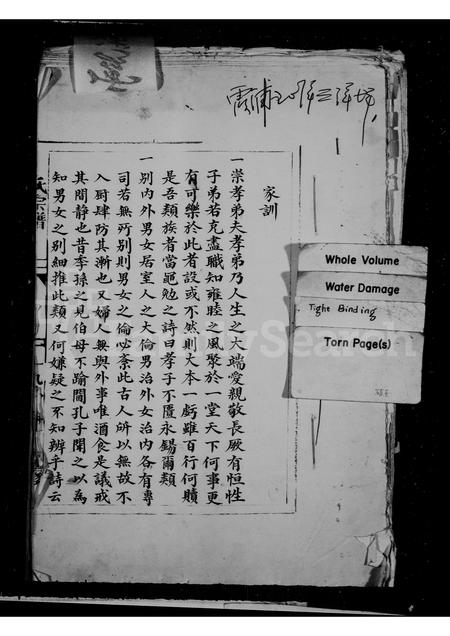 家訓
一崇孝弟夫孝弟乃人生之大端愛親敬長厥有恒性
子弟若克盡職知雍睦之風聚於一堂天下何事更
有可樂於此者設或不然則大本一虧雖百行何贖
是吾類族者當黽勉之詩曰孝子不匱永錫爾類
一別內外男女居室人之大倫男治外女治內各有專
司若無所別則男女之倫必紊此古人所以無故不
入厨肆防其漸也又婦人無與外事唯酒食是議戒
其間靜也昔季孫之見伯母不踰閫孔子聞之以為
知男女之別細推此類又何嫌疑之不知辨乎詩云
氏宗譜
Whole Volume
Water Damage
Tight Binding
Torn Page(s)